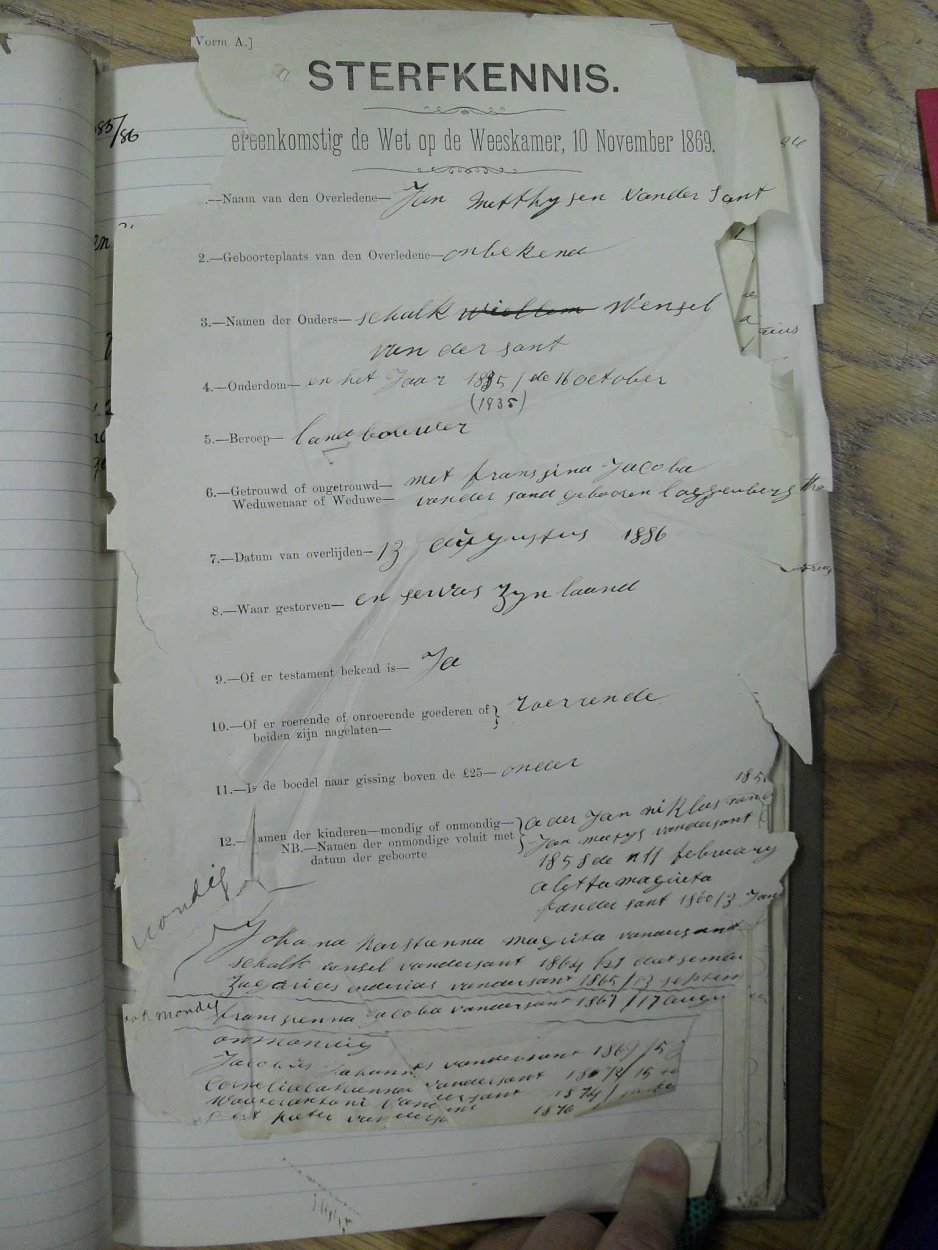 [Vorm A.]
STERFKENNIS.
ereenkomstig de Wet op de Weeskamer, 10 November 1869.
85/86
.—Naam van den Overledene— Jan Metthysen vander Sant
2.—Geboorteplaats van den Overledene— onbekend
3.—Namen der Ouders— schalk Wiellem Wensel
van der sant
4.—Ouderdom— en het Jaar 1835 / de 16 october
(1835)
5.—Beroep— land bouwer
6.—Getrouwd of ongetrouwd— met fransina Jacoba
Weduwenaar of Weduwe— vander sand gebooren laggenberg
7.—Datum van overlijden— 13 augustus 1886
8.—Waar gestorven— en servas zyn laand
9.—Of er testament bekend is— Ja
10.—Of er roerende of onroerende goederen of
beiden zijn nagelaten— roerrende
11.—Is de boedel naar gissing boven de £25— onder
12.—Namen der kinderen—mondig of onmondig—
NB.—Namen der onmondige voluit met
datum der geboorte
ader Jan niklas
Jan matys vandersant
1858 de 11 february
aletta magrieta
fander sant 1860/3 Jan
mondig
Johana kristanna magrieta vandersant
schalk vensel vandersant 1864/21 deetsember
vandersant 1865/13 septem
mondig fransienna Jacoba vandersant 1867/17 augu
onmondig
Jacobus Johannes vandersant 1869/5
vandersant 15
vandersant 1874/
pieter vander 1876